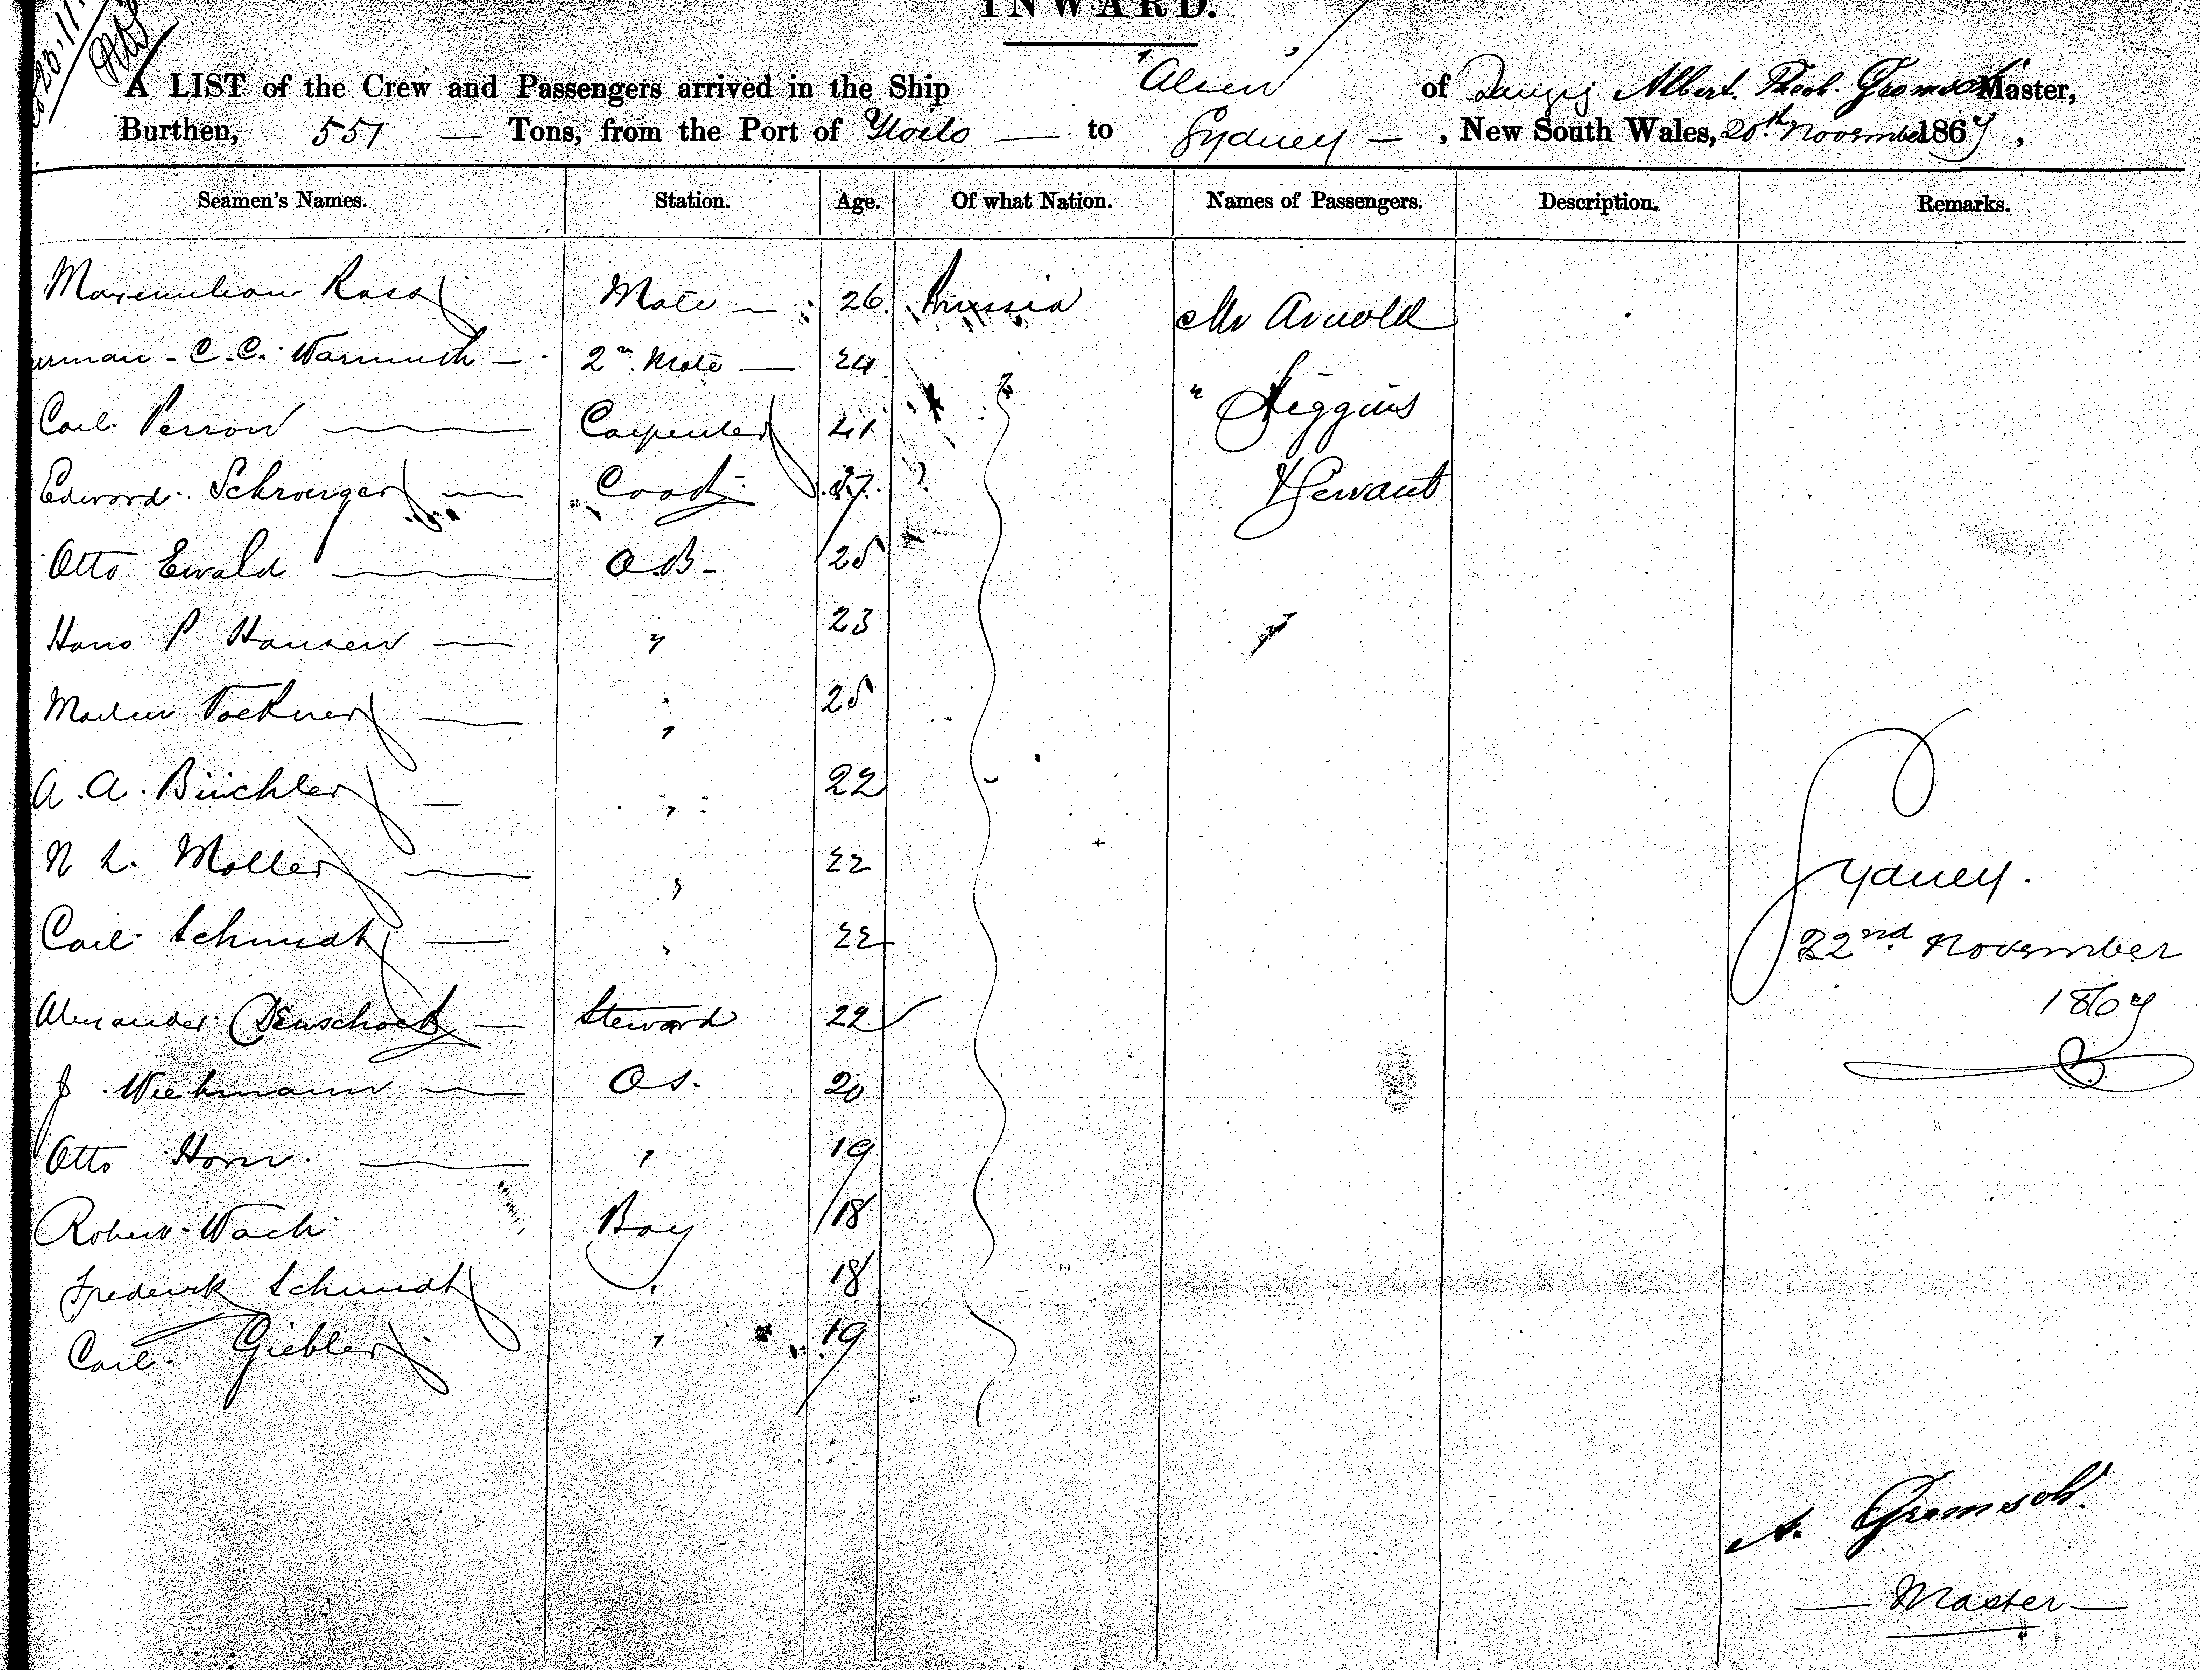 INWARD.
A LIST of the Crew and Passengers arrived in the Ship "Alsen" of Danzig Albert. Theod. Gromsch Master,
Burthen, 551 — Tons, from the Port of Iloilo — to Sydney — , New South Wales, 20th November 1867,
Seamen's Names. Station. Age. Of what Nation. Names of Passengers. Description. Remarks.
Mate — 26 Prussia Mr Arnold
C. C. Warmuth — 2n Mate — 24
Carl Perrow — Carpenter 41 " Higgins
Edward Cook 27 & Servant
Otto Ewald — A.B. 25
Hans P Hansen — " 23
Martin — " 25
A. A. Büchler — " 22
N L. Moller — " 22
Carl Schmidt — " 22
Alexander — Steward 22
J Wiehmann — O S. 20
Sydney.
22nd November
1867
Otto Horn. — " 19
Robert Wach Boy 18
Frederick Schmidt " 18
Carl Giebler " 19
A. Gromsch.
— Master —